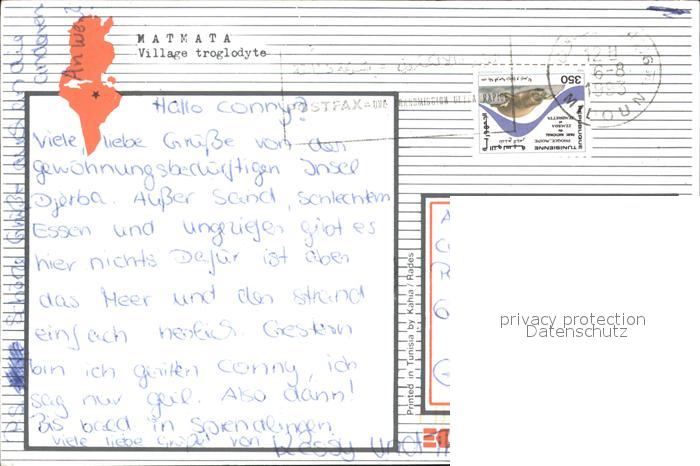 MATMATA
Village troglodyte
Hallo Conny!
Viele, liebe Grüße von der
gewöhnungsbedürftigen Insel
Djerba. Außer Sand, schlechtem
Essen und ungeziefer gibt es
hier nichts Dafür ist aber
das Meer und der strand
einfach herlich. Gestern
bin ich geritten Conny, ich
sag nur geil. Also dann!
Bis bald in Sprendlingen.
Viele liebe Grüße von Kessy und
PS: Schöne Grüße auch an die anderen
Printed in Tunisia by Kahia / Rades
350
REPUBLIQUE
TUNISIENNE
privacy protection
Datenschutz